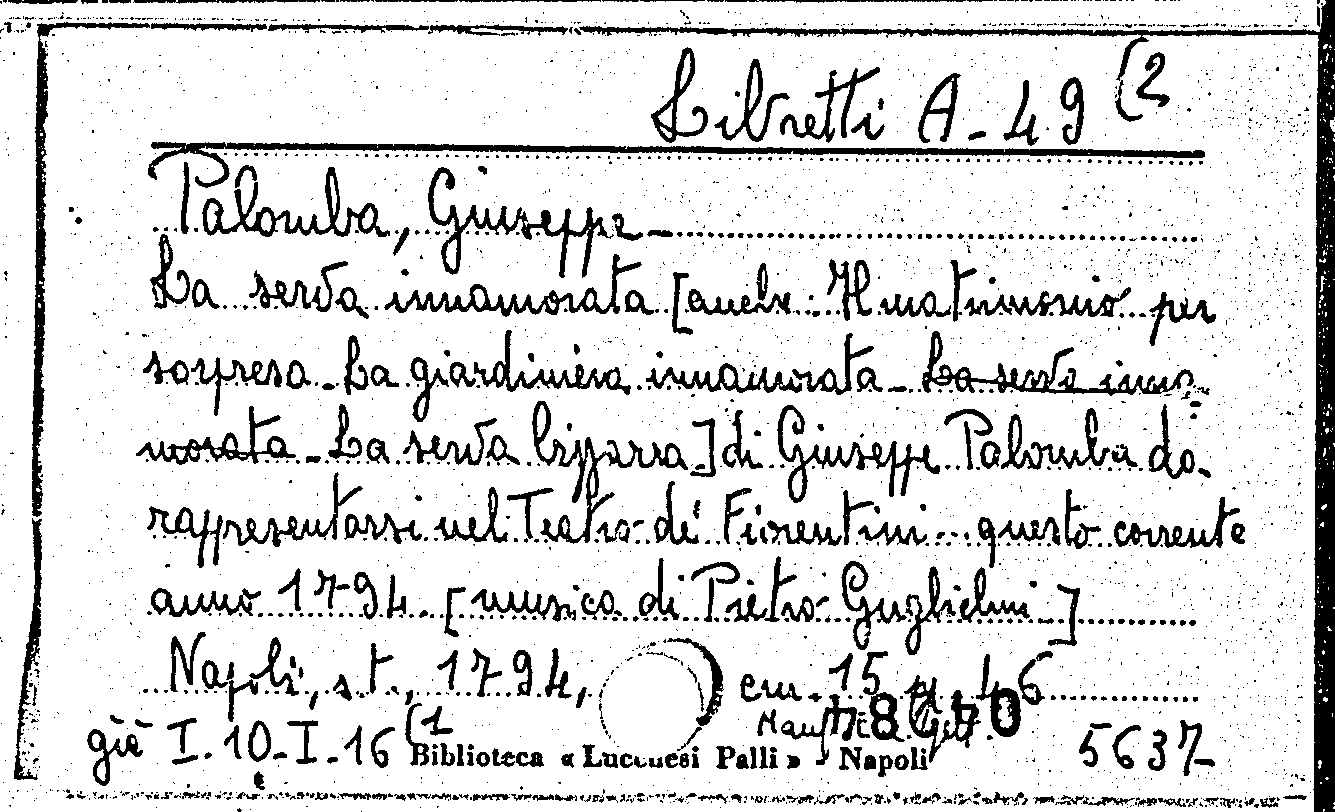 Libretti A-49 (2
Palomba, Giuseppe-
La serva innamorata [anche: Il matrimonio per
sorpresa - La giardiniera innamorata - La serva inna-
morata - La serva bizzarra] di Giuseppe Palomba da
rappresentarsi nel Teatro de' Fiorentini... questo corrente
anno 1794. [musica di Pietro Guglielmi]
Napoli, s.t., 1794, cm. 15 pp. 46
già I.10-I-16 (1 5637
Biblioteca « Lucchesi Palli » - Napoli